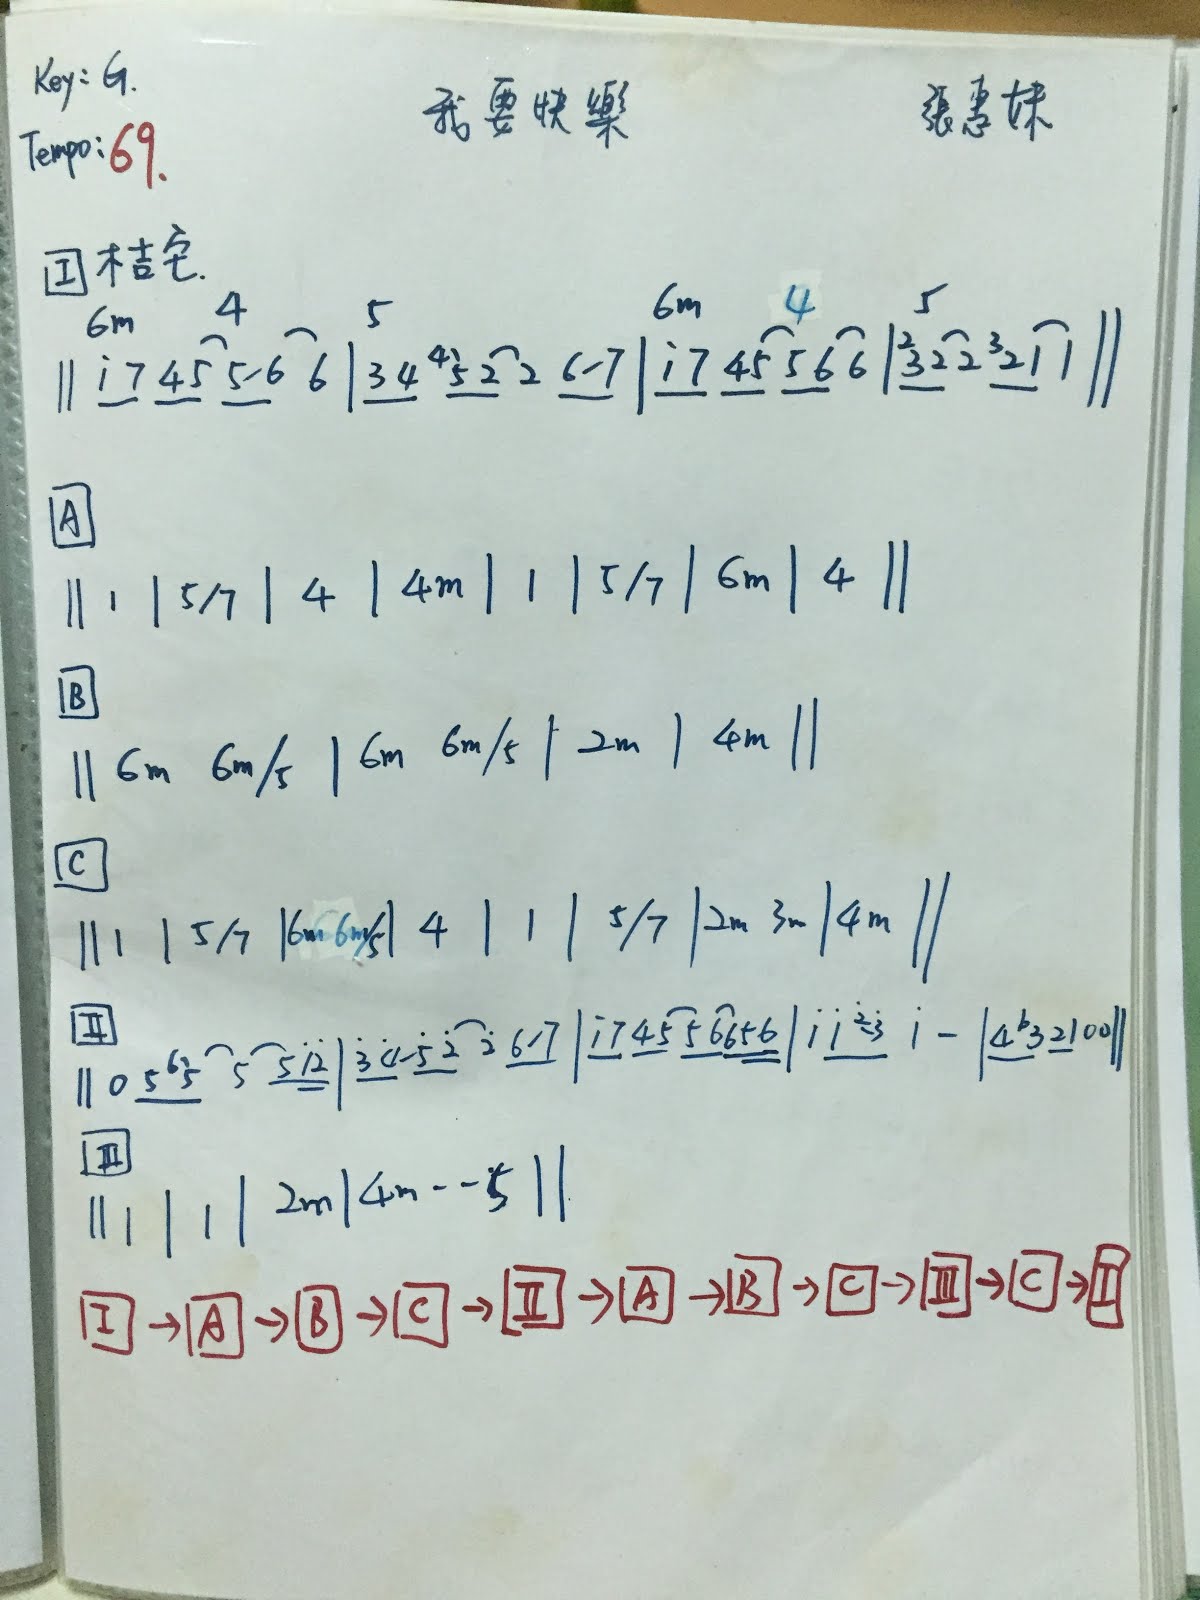 Key: G.
我要快樂
張惠妹
Tempo: 69.
I 桔宅.
6m 4 5 6m 4 5
|| i 7 4 5 5 6 6 | 3 4 4 5 2 2 6 7 | i 7 4 5 5 6 6 | 2 3 2 2 3 2 1 1 ||
A
|| 1 | 5/7 | 4 | 4m | 1 | 5/7 | 6m | 4 ||
B
|| 6m 6m/5 | 6m 6m/5 | 2m | 4m ||
C
|| 1 | 5/7 | 6m 6m/5 | 4 | 1 | 5/7 | 2m 3m | 4m ||
II
|| 0 5 6 5 5 5 i 2 | 3 4 5 2 2 6 7 | i 7 4 5 5 6 6 5 6 | i i 2 3 i - | 4 b3 2 1 0 0 ||
III
|| 1 | 1 | 2m | 4m - - 5 ||
I → A → B → C → II → A → B → C → III → C → I